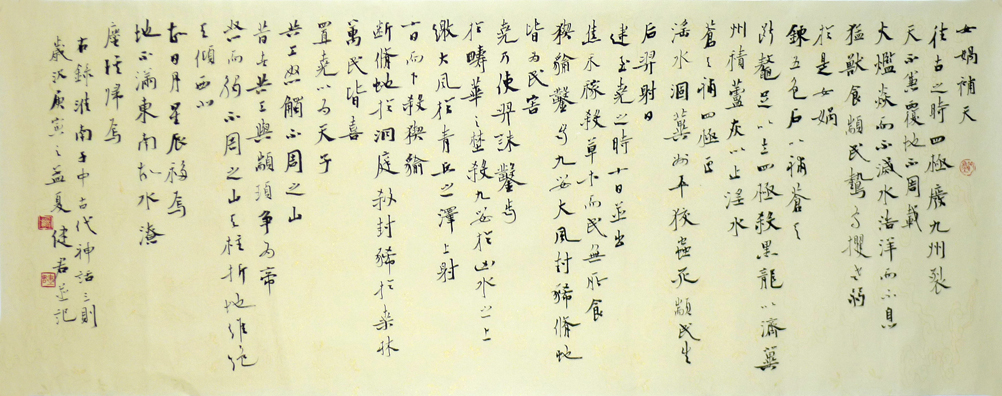 女媧補天
往古之時四極廢九州裂
天不兼覆地不周載
火爁焱而不滅水浩洋而不息
猛獸食顓民鷙鳥攫老弱
於是女媧
鍊五色石以補蒼天
斷鼇足以立四極殺黑龍以濟冀
州積蘆灰以止淫水
蒼天補四極正
淫水涸冀州平狡蟲死顓民生
后羿射日
逮至堯之時十日並出
焦禾稼殺草木而民無所食
猰貐鑿齒九嬰大風封豨脩蛇
皆為民害
堯乃使羿誅鑿齒
於疇華之野殺九嬰於凶水之上
繳大風於青丘之澤上射
十日而下殺猰貐
斷脩蛇於洞庭禽封豨於桑林
萬民皆喜
置堯以為天子
共工怒觸不周之山
昔者共工與顓頊爭為帝
怒而觸不周之山天柱折地維絕
天傾西北
故日月星辰移焉
地不滿東南故水潦
塵埃歸焉
右錄淮南子中古代神話三則
歲次庚寅之孟夏健君並記